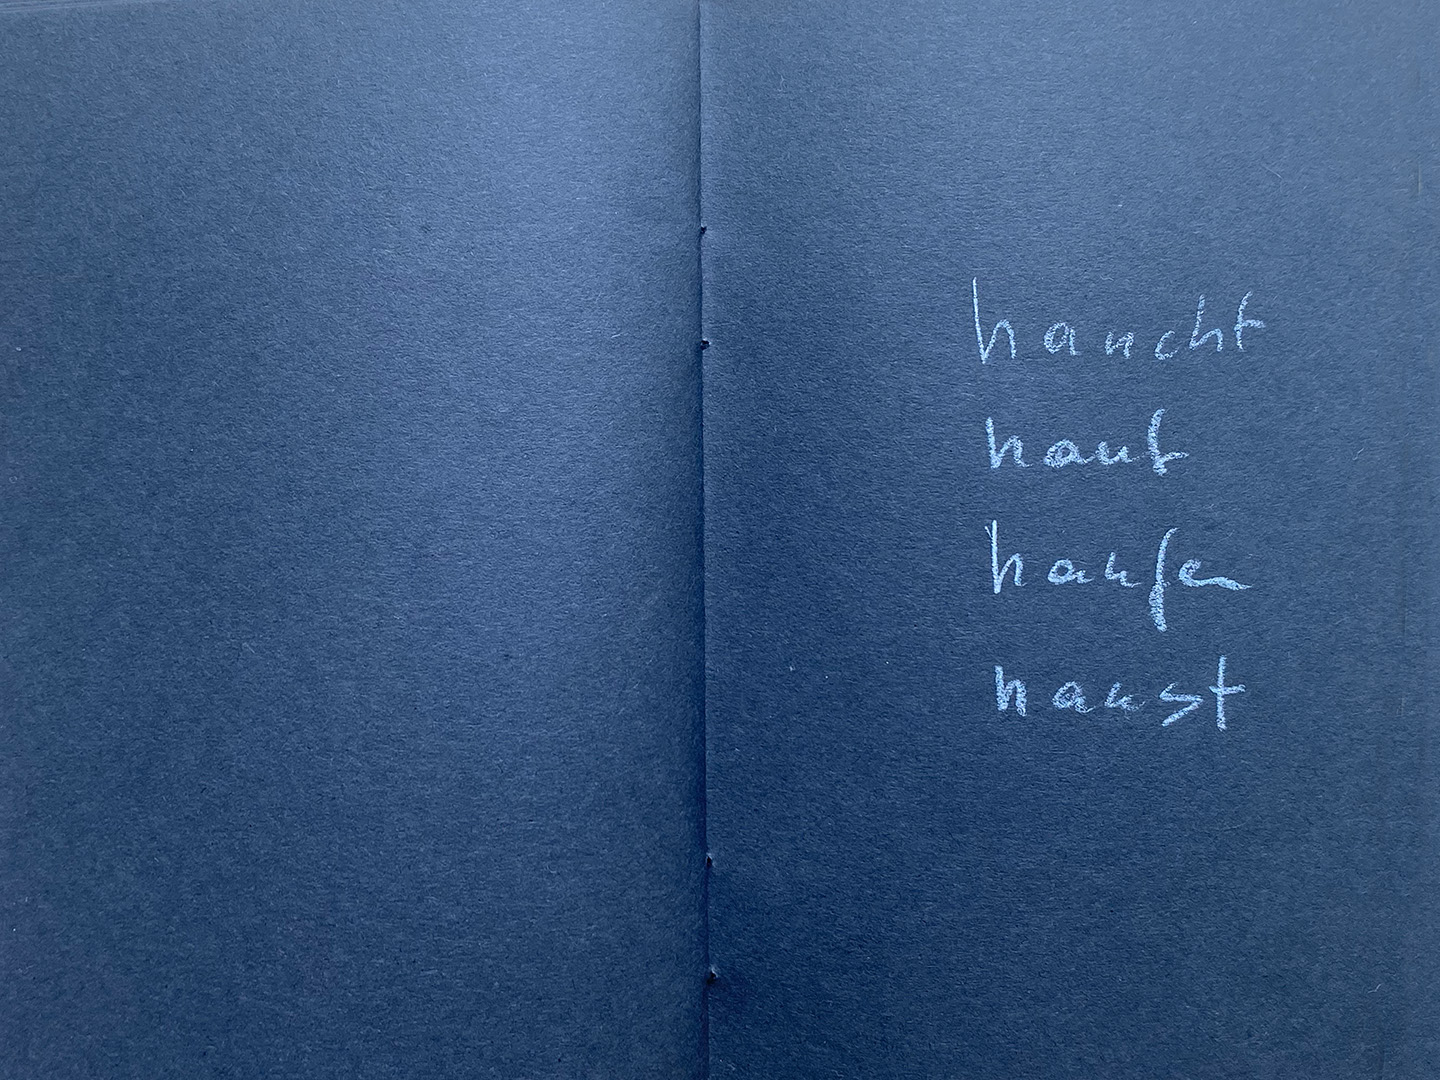 haucht
haut
haufen
haust